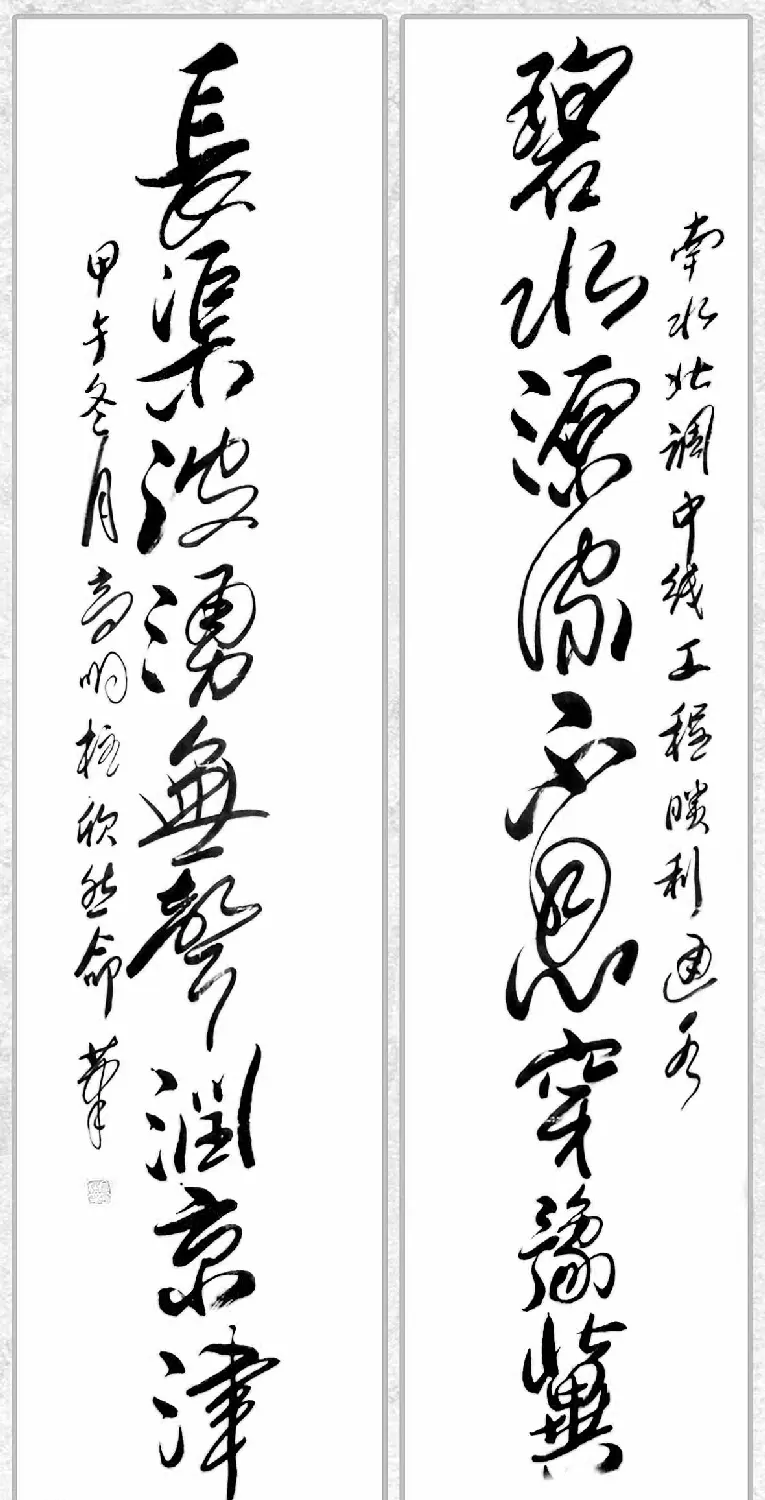 南水北调中线工程勝利通水
碧水源不穿豫冀
長渠波湧無聲潤京津
甲午冬月高明柱欣然命筆